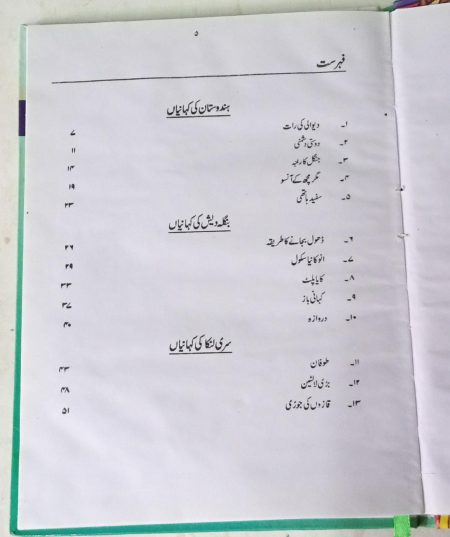 ۵
فہرست
ہندوستان کی کہانیاں
۱۔ دیوالی کی رات ۷
۲۔ دوستی دشمنی ۱۱
۳۔ جنگل کا راجہ ۱۴
۴۔ مگرمچھ کے آنسو ۱۹
۵۔ سفید ہاتھی ۲۳
بنگلہ دیش کی کہانیاں
۶۔ ڈھول بجانے کا طریقہ ۲۶
۷۔ انوکا نیا سکول ۲۹
۸۔ کایا پلٹ ۳۳
۹۔ کہانی باز ۳۷
۱۰۔ دروازہ ۴۰
سری لنکا کی کہانیاں
۱۱۔ طوفان ۴۳
۱۲۔ بڑی لالٹین ۴۸
۱۳۔ قازوں کی جوڑی ۵۱